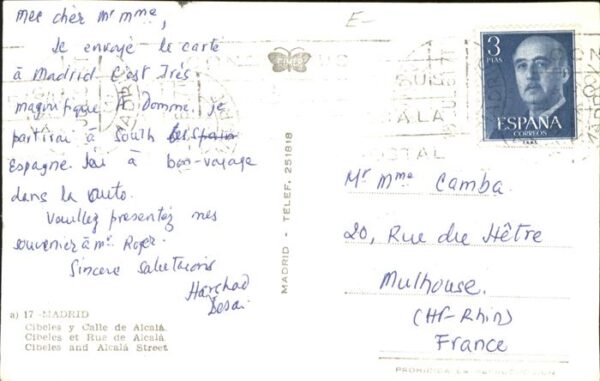 Mes chèr Mr mme,
Je envoyé le carte
à Madrid C'est Très
magnifique A Domme. je
partirai à South
Espagne. Jai à bon-voyage
dans la auto.
Veuillez presentez mes
souvenier à Mr. Roger.
Sincere salutacions
Harshad
Desai
a) 17 - MADRID
Cibeles y Calle de Alcalá
Cibeles et Rue de Alcalá
Cibeles and Alcalá Street
FIMER
MADRID - TELEF. 251818
E-
3
PTAS
ESPAÑA
CORREOS
MADRID
Mr Mme Camba.
20, Rue du Hêtre
Mulhouse.
(Ht-Rhin)
France
PROHIBIDA LA REPRODUCCION